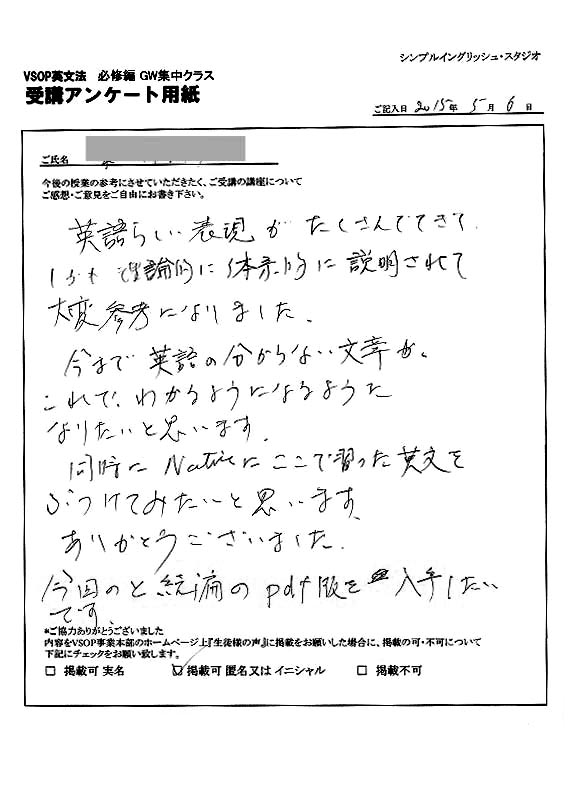 シンプルイングリッシュ・スタジオ
VSOP英文法 必修編 GW集中クラス
受講アンケート用紙
ご記入日 2015年 5月 6日
ご氏名
今後の授業の参考にさせていただきたく、ご受講の講座について
ご感想・ご意見をご自由にお書き下さい。
英語らしい表現がたくさんでてきて、
しかも理論的に体系的に説明されて
大変参考になりました。
今まで英語の分からない文章が、
これで、わかるようになるように
なりたいと思います。
同時にNativeにここで習った英文を
ぶつけてみたいと思います。
ありがとうございました。
今回のと続編のpdf版を入手したい
です。
*ご協力ありがとうございました
内容をVSOP事業本部のホームページ上『生徒様の声』に掲載をお願いした場合に、掲載の可・不可について
下記にチェックをお願い致します。
□ 掲載可 実名 ☑ 掲載可 匿名又は イニシャル □ 掲載不可